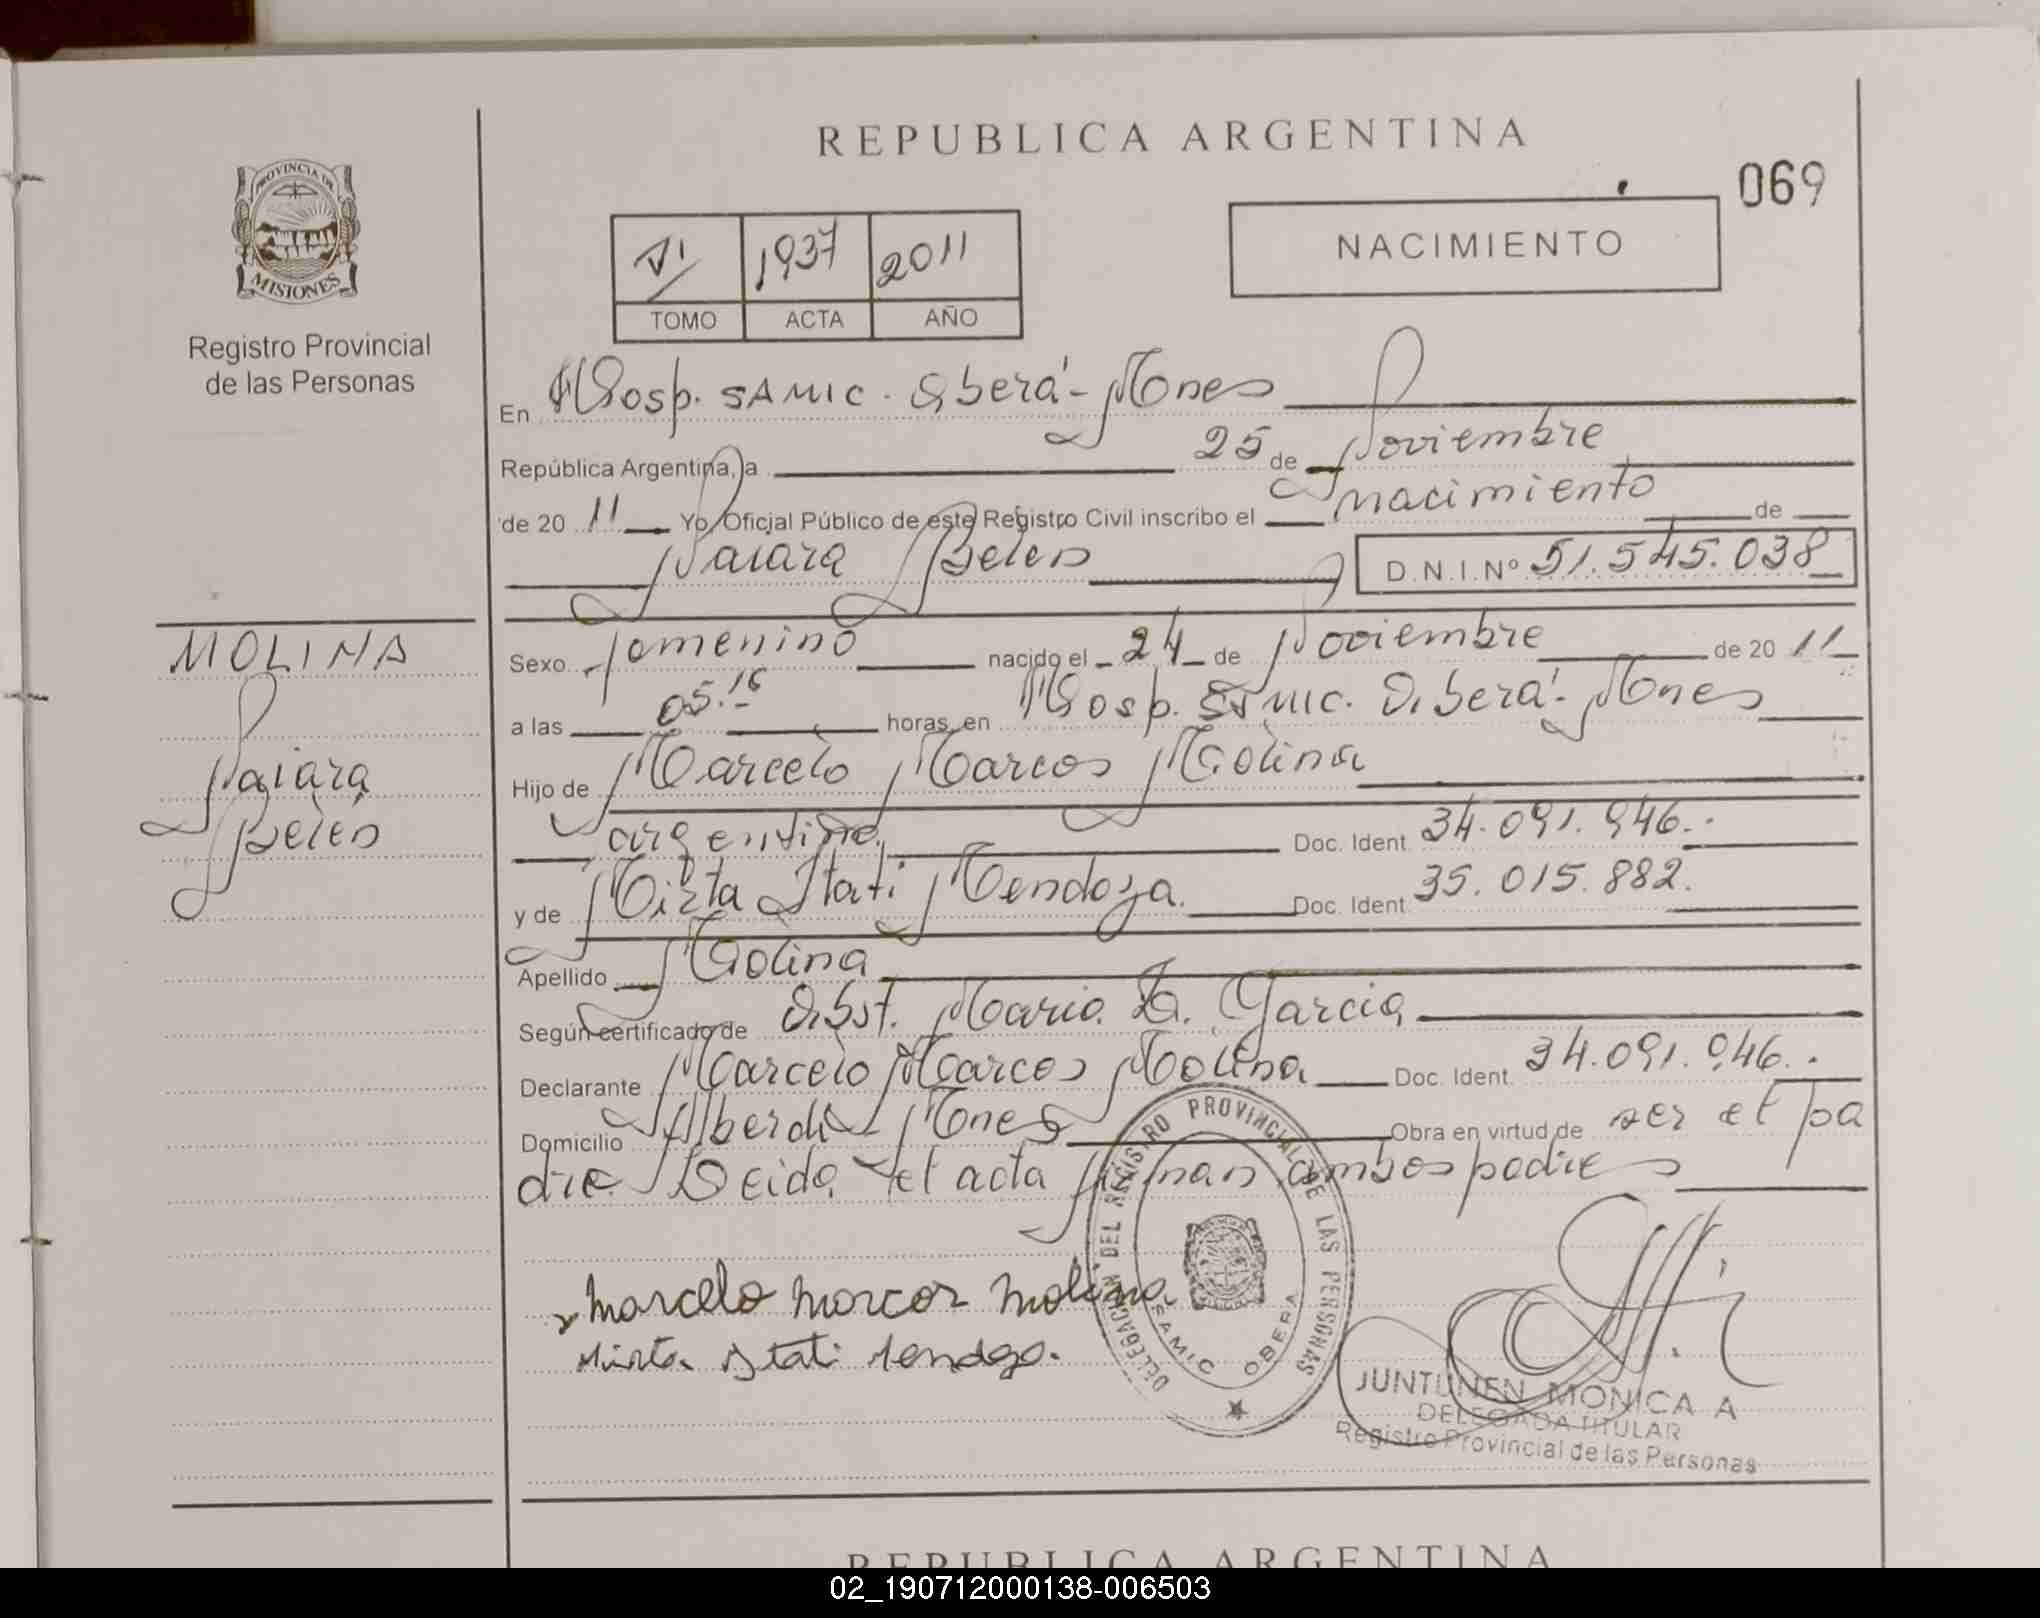 REPUBLICA ARGENTINA
069
PROVINCIA DE
MISIONES
Registro Provincial
de las Personas
NACIMIENTO
1937 2011
TOMO ACTA AÑO
En Hosp. SAMIC. Oberá - Mnes
República Argentina, a 25 de Noviembre
de 20 11 Yo, Oficial Público de este Registro Civil inscribo el nacimiento de
Naiara Belen D.N.I.Nº 51.545.038
MOLINA
Naiara
Belen
Sexo femenino nacido el 24 de Noviembre de 20 11
a las 05.15 horas, en Hosp. SAMIC. Oberá - Mnes
Hijo de Marcelo Marcos Molina
argentino. Doc. Ident. 34.091.946.
y de Mirta Itati Mendoza. Doc. Ident. 35.015.882.
Apellido Molina
Según certificado de Obst. Mario Garcia
Declarante Marcelo Marcos Molina Doc. Ident. 34.091.946.
Domicilio Alberdi Mnes Obra en virtud de ser el pa
dre. Leida el acta firman ambos padres
Marcelo Marcos Molina
Mirta Itati
DELEGACION DEL REGISTRO PROVINCIAL DE LAS PERSONAS
SAMIC OBERA
JUNTUNEN MONICA A
DELEGADA TITULAR
Registro Provincial de las Personas
REPUBLICA ARGENTINA
02_190712000138-006503